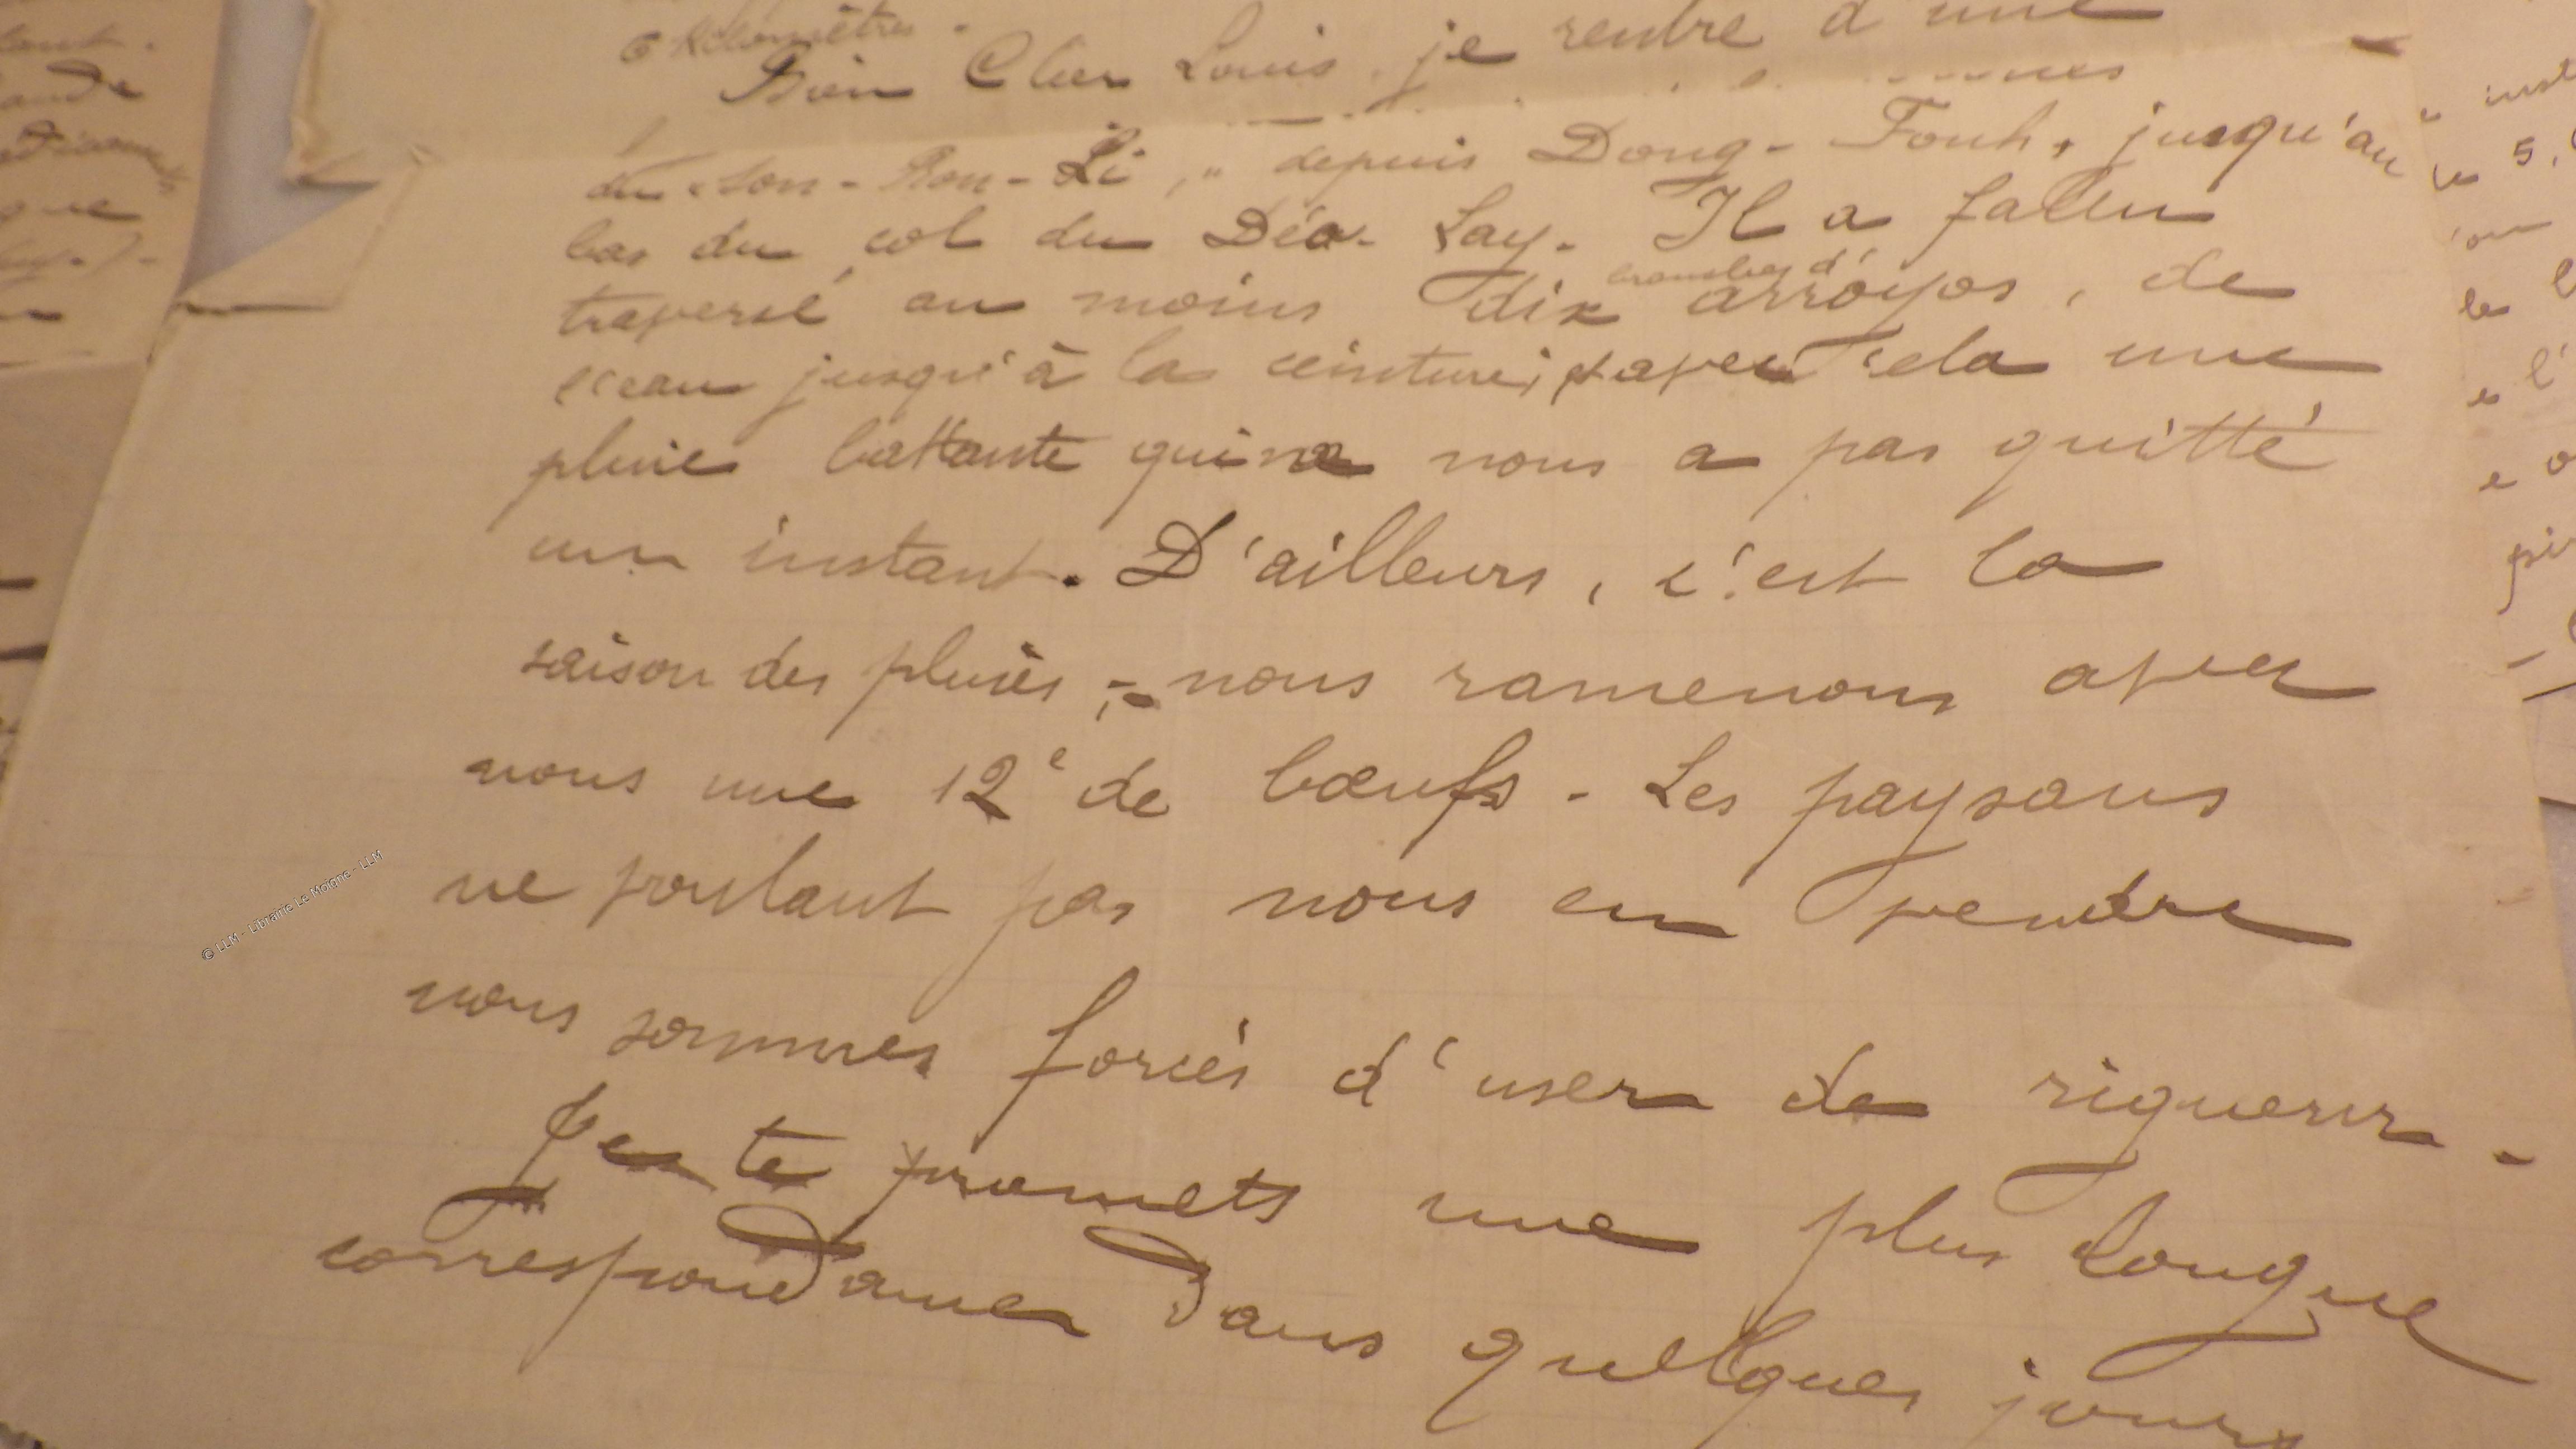 6 Kilomètres -
Bien Cher Louis, je rentre d'une
du "Son-Ron-Li," depuis Dong-Fouh, jusqu'au
bas du col du Déo-Lay. Il a fallu
traversé au moins dix branches d'arroyos, de
l'eau jusqu'à la ceinture; avec cela une
pluie battante qui ne nous a pas quitté
un instant. D'ailleurs, c'est la
saison des pluies; - nous ramenons avec
nous une 12e de bœufs - Les paysans
ne voulant pas nous en vendre
nous sommes forcés d'user de rigueur -
Je te promets une plus longue
correspondance dans quelques jours
© LLM - Librairie Le Moigne - LLM